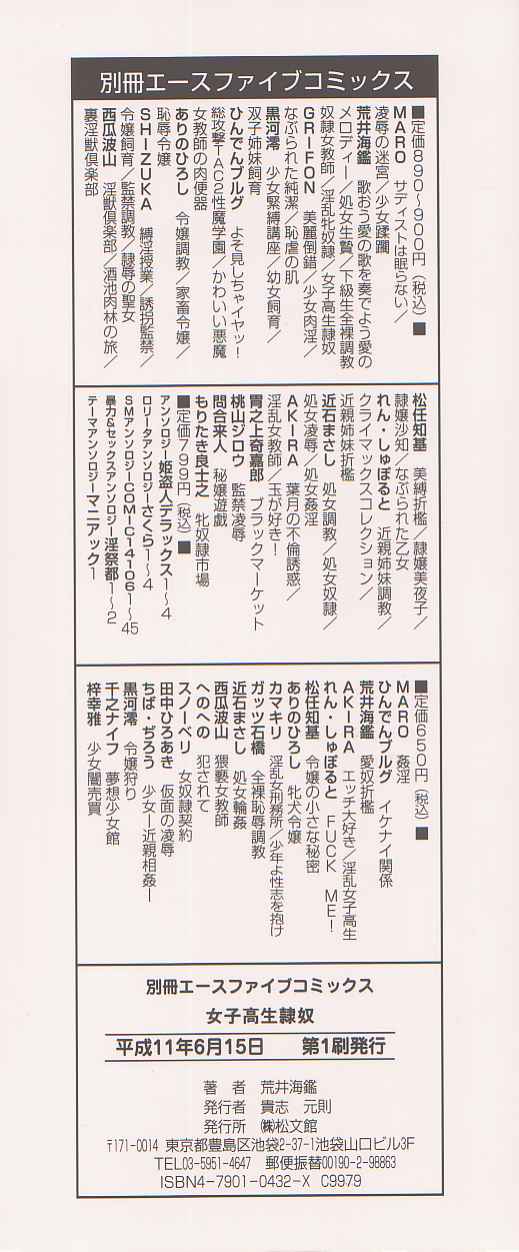 別冊エースファイブコミックス
■定価890〜900円(税込)■
MARO サディストは眠らない/
凌辱の迷宮/少女蹂躙
荒井海鑑 歌おう愛の歌を奏でよう愛の
メロディー/処女生贄/下級生全裸調教
奴隷女教師/淫乱牝奴隷/女子高生隷奴
GRIFON 美麗倒錯/少女肉淫/
なぶられた純潔/恥虐の肌
黒河澪 少女緊縛講座/幼女飼育/
双子姉妹飼育
ひんでんブルグ よそ見しちゃイヤッ!
総攻撃TAC2性魔学園/かわいい悪魔
女教師の肉便器
ありのひろし 令嬢調教/家畜令嬢/
恥辱令嬢
SHIZUKA 縛淫授業/誘拐監禁/
令嬢飼育/監禁調教/隷辱の聖女
西瓜波山 淫獣倶楽部/酒池肉林の旅/
裏淫獣倶楽部
松任知基 美縛折檻/隷嬢美夜子/
隷嬢沙知/なぶられた乙女
れん・しゅぽると 近親姉妹調教/
クライマックスコレクション/
近親姉妹折檻
近石まさし 処女調教/処女奴隷/
処女凌辱/処女姦淫
AKIRA 葉月の不倫誘惑/
淫乱女教師/玉が好き!
胃之上奇嘉郎 ブラックマーケット
桃山ジロウ 監禁凌辱
問合来人 秘嬢遊戯
もりたき良士之 牝奴隷市場
■定価799円(税込)■
アンソロジー姫盗人デラックス1〜4
ロリータアンソロジーさくら1〜4
SMアンソロジーCOMIC14106 1〜45
暴力&セックスアンソロジー淫祭都1〜2
テーマアンソロジーマニアック1
■定価650円(税込)■
MARO 姦淫
ひんでんブルグ イケナイ関係
荒井海鑑 愛奴折檻
AKIRA エッチ大好き/淫乱女子高生
れん・しゅぽると FUCK ME!
松任知基 令嬢の小さな秘密
ありのひろし 牝犬令嬢
カマキリ 淫乱女刑務所/少年よ性志を抱け
ガッツ石橋 全裸恥辱調教
近石まさし 処女輪姦
西瓜波山 猥褻女教師
へのへの 犯されて
スノーベリ 女奴隷契約
田中ひろあき 仮面の凌辱
ちば・ぢろう 少女ー近親相姦ー
黒河澪 令嬢狩り
千之ナイフ 夢想少女館
梓幸雅 少女闇売買
別冊エースファイブコミックス
女子高生隷奴
平成11年6月15日 第1刷発行
著 者 荒井海鑑
発行者 貴志 元則
発行所 ㈱松文館
〒171-0014 東京都豊島区池袋2-37-1池袋山口ビル3F
TEL03-5951-4647 郵便振替00190-2-98863
ISBN4-7901-0432-X C9979